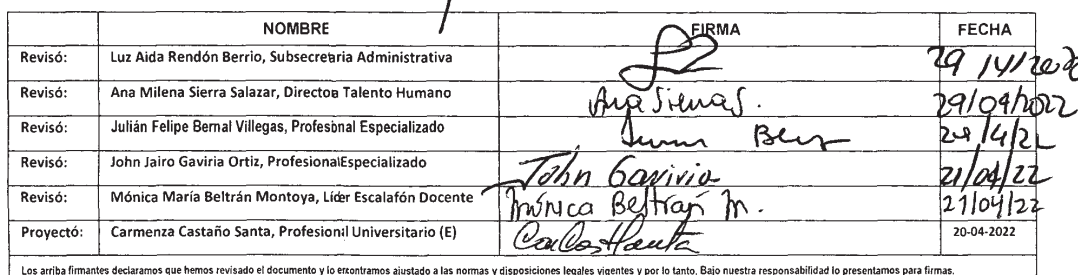 NOMBRE FIRMA FECHA
Revisó: Luz Aida Rendón Berrio, Subsecretaria Administrativa
Revisó: Ana Milena Sierra Salazar, Director Talento Humano Ana Sierra S. 29/04/2022
Revisó: Julián Felipe Bernal Villegas, Profesional Especializado
Revisó: John Jairo Gaviria Ortiz, Profesional Especializado John Gaviria 21/04/22
Revisó: Mónica María Beltrán Montoya, Líder Escalafón Docente Mónica Beltrán M. 21/04/22
Proyectó: Carmenza Castaño Santa, Profesional Universitario (E) 20-04-2022
Los arriba firmantes declaramos que hemos revisado el documento y lo encontramos ajustado a las normas y disposiciones legales vigentes y por lo tanto, Bajo nuestra responsabilidad lo presentamos para firmas.